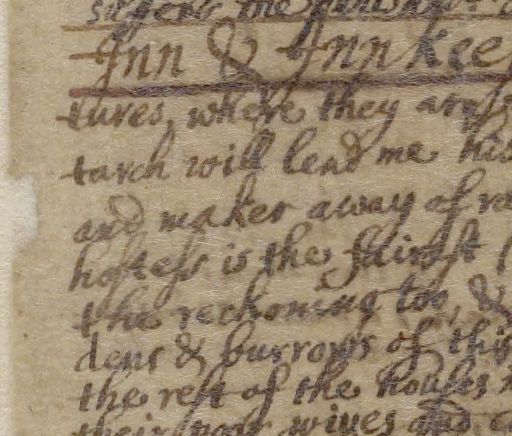 suffers the
Inn & Innkee
tures, where they are
tarch will lend me his
and makes away of ra
hostess is the fairest
the reckoning too, &
dens & burrows of this
the rest of the houses
their poor wives and